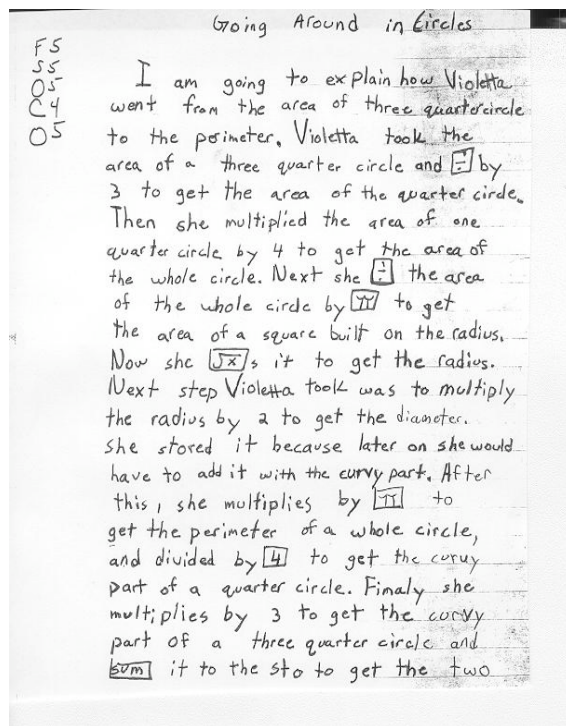 Going Around in Circles
F5
S5
O5
C4
O5
I am going to explain how Violetta
went from the area of three quartercircle
to the perimeter. Violetta took the
area of a three quarter circle and ÷ by
3 to get the area of the quarter circle.
Then she multiplied the area of one
quarter circle by 4 to get the area of
the whole circle. Next she ÷ the area
of the whole circle by π to get
the area of a square built on the radius.
Now she √x s it to get the radius.
Next step Violetta took was to multiply
the radius by 2 to get the diameter.
she stored it because later on she would
have to add it with the curvy part. After
this, she multiplies by π to
get the perimeter of a whole circle,
and divided by 4 to get the curvy
part of a quarter circle. Finaly she
multiplies by 3 to get the curvy
part of a three quarter circle and
sum it to the sto to get the two